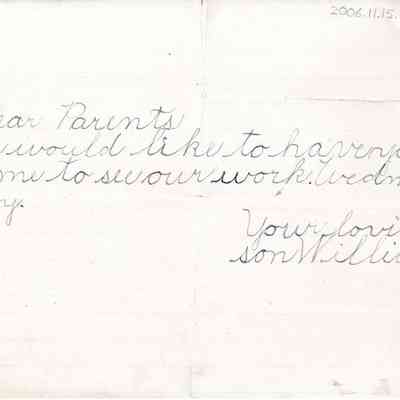 2006.11.15.
ear Parents
would like to have y
me to see our work. Wedn
y.
Your lovi
son Willi